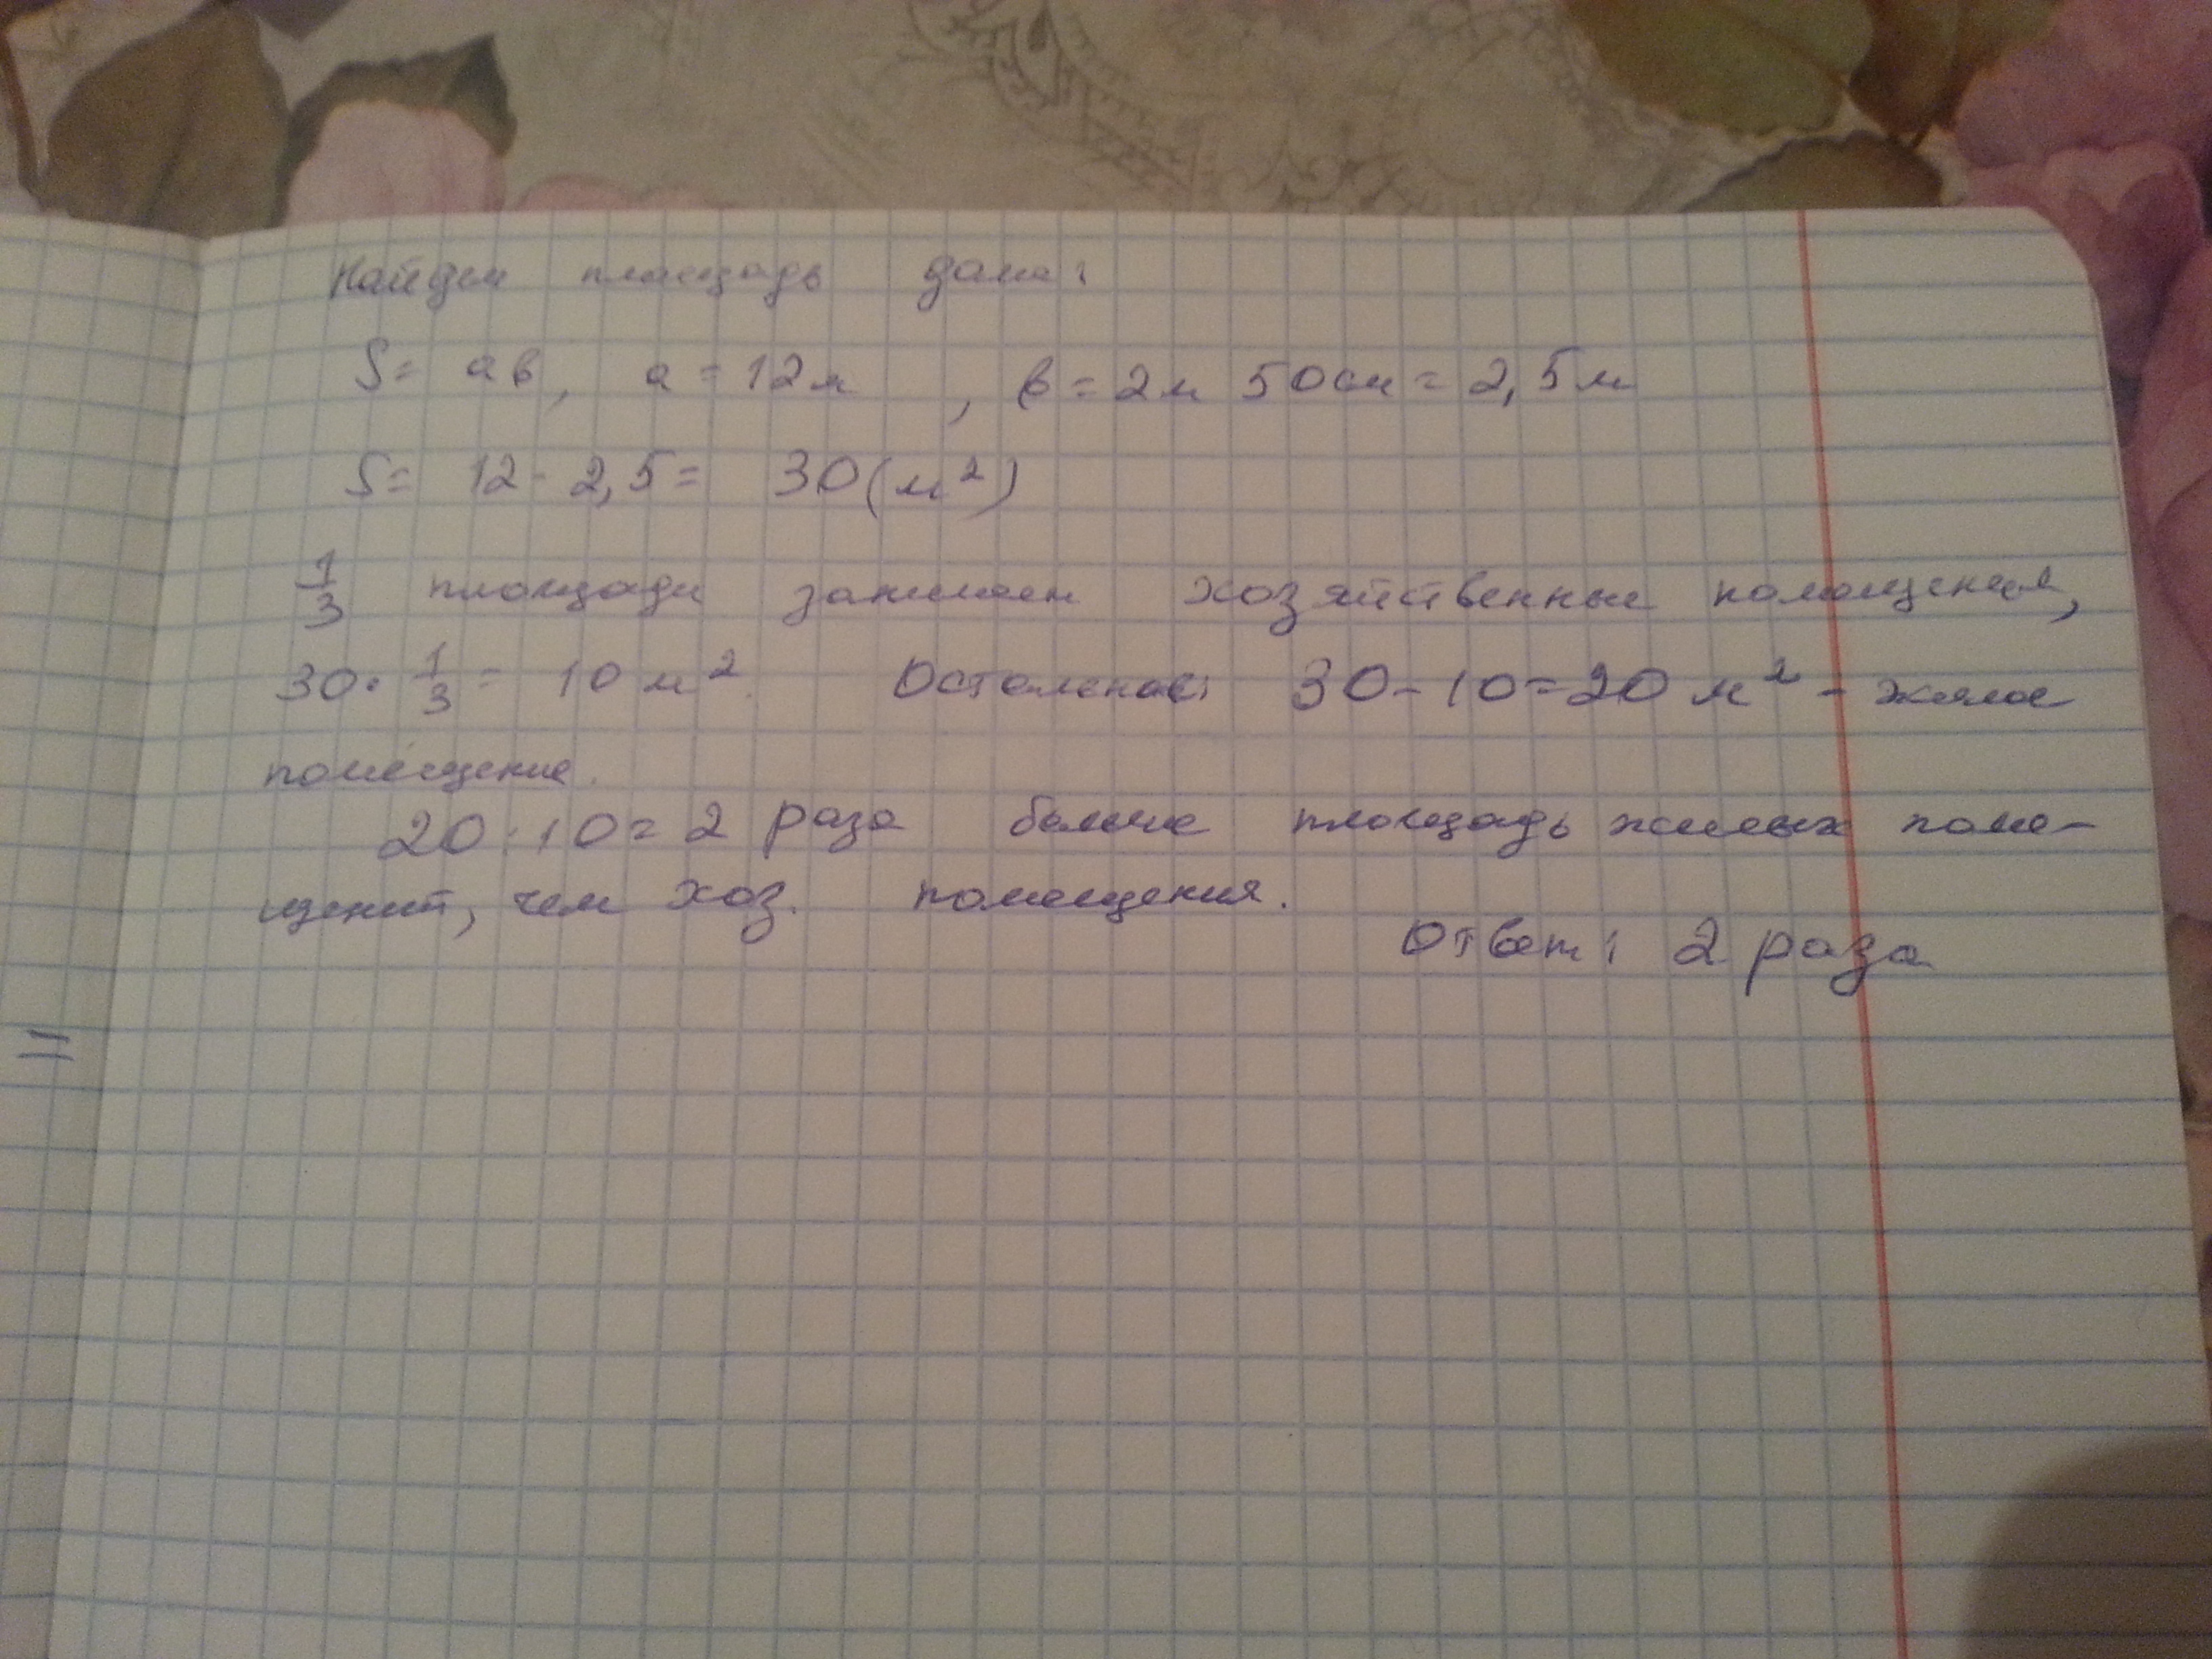 Найдем площадь дома:
S= ab, a = 12м, b = 2м 50см = 2,5м
S= 12 · 2,5 = 30 (м²)
1/3 площади занимаем хозяйственные помещения,
30 · 1/3 = 10 м². Остальное: 30 - 10 = 20 м² - жилое
помещение.
20 : 10 = 2 раза больше площадь жилых поме-
щений, чем хоз. помещения.
Ответ: 2 раза
=